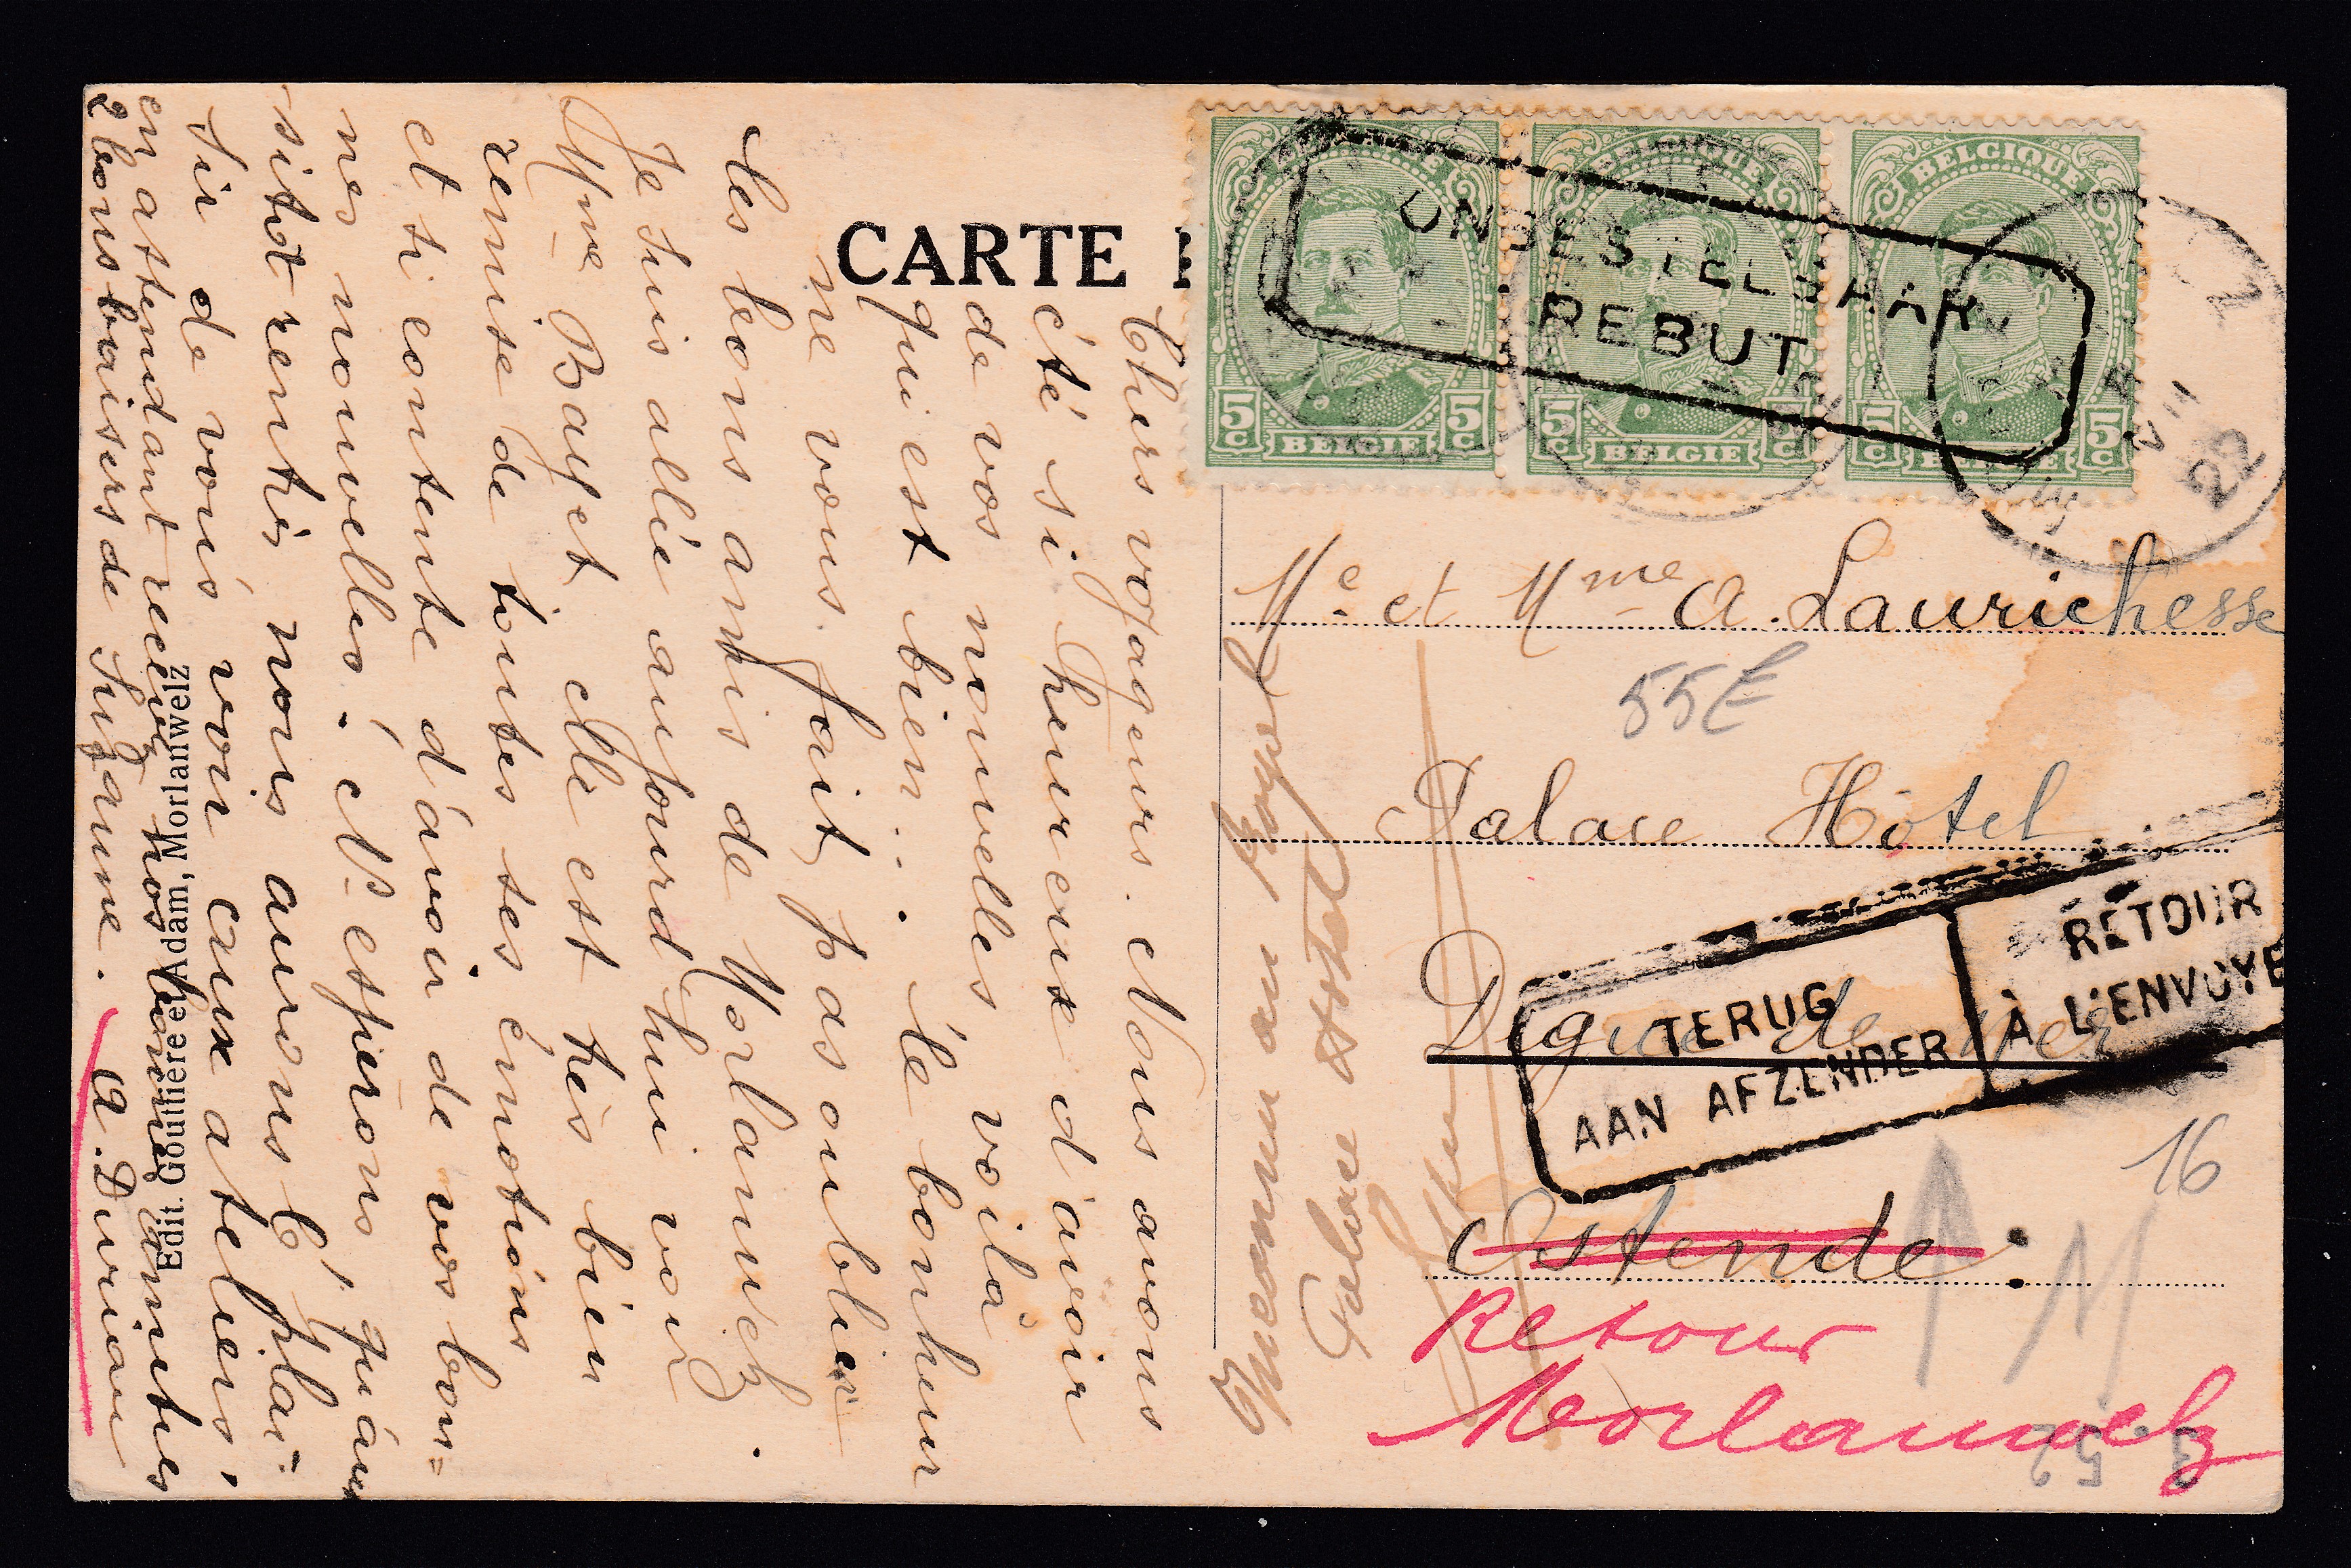 CARTE
Chers voyageurs. Nous avons
été si heureux d'avoir
de vos nouvelles voilà
qui est bien... Le bonheur
ne vous fait pas oublier
les bons amis de Morlanwelz.
Je suis allée aujourd'hui voir
Mme Bayet elle est très bien
remise de toutes ses émotions
et si contente d'avoir de vos bon=
nes nouvelles. Ns espérons, qu'aus
sitôt rentrés nous aurons l'plai=
sir de vous voir aux ateliers,
en attendant recevez nos bonnes amitiés
2 bons baisers de Suzanne. A. Durieau
Edit. Goulliere et Adam, Morlanwelz
BELGIQUE
5 C
BELGIE
5 C
BELGIQUE
5 C
BELGIE
5 C
BELGIQUE
5 C
BELGIE
5 C
ONBESTELBAAR
REBUT
22
Mr et Mme A. Laurichesse
55E
Palace Hôtel
Digue de Mer
Ostende.
TERUG
AAN AFZENDER
RETOUR
À L'ENVOYE
Inconnu au Royal
Palace Hotel
16
Retour
Morlanwelz